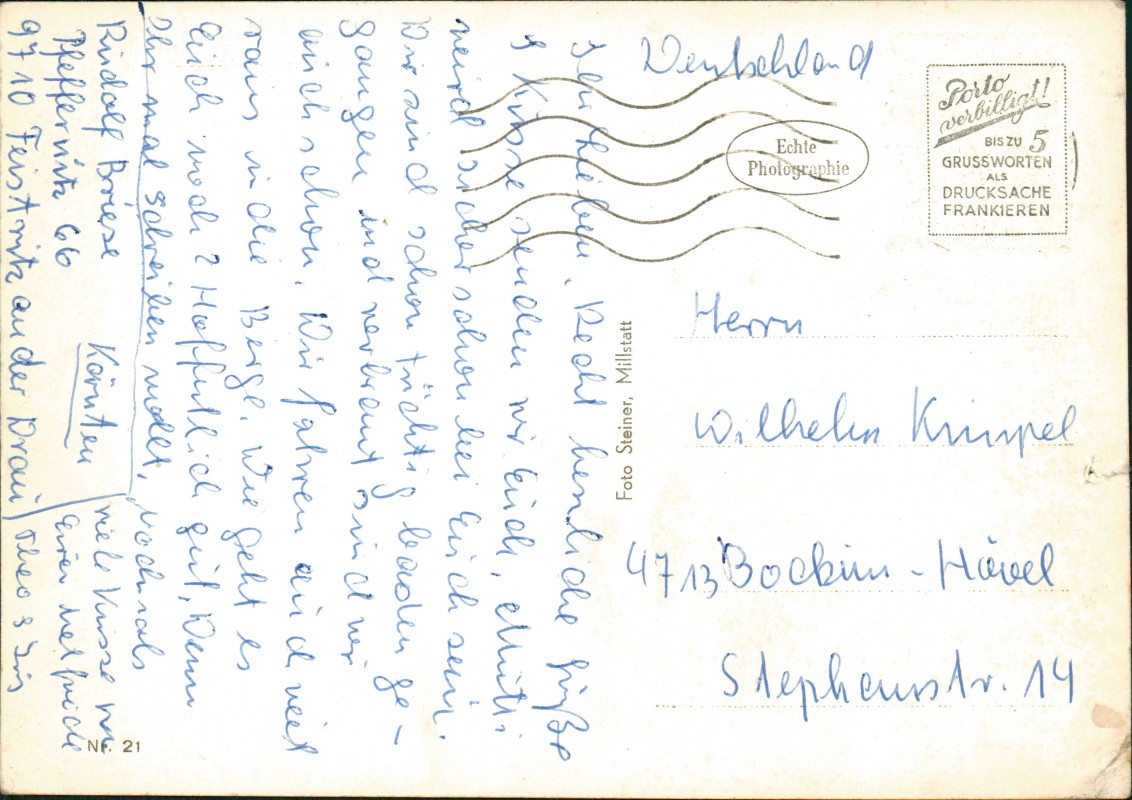 Ihr Lieben. Recht herzliche Grüße
& Küsse senden wir Euch, Mutti
wird sicher schon bei Euch sein.
Wir sind schon tüchtig baden ge-
gangen und verbrant sind wir
auch schon. Wir fahren auch viel
raus in die Berge. Wie geht es
Euch noch? Hoffentlich gut, Wenn
Ihr mal schreiben wollt, nochmals
Rudolf Boriese
Pfeffernitz 66
Kärnten
9710 Feistritz an der Drau
viele Küsse von
Euren
Theo &
Nr. 21
Foto Steiner, Millstatt
Deutschland
Echte
Photographie
Porto
verbilligt!
BIS ZU 5
GRUSSWORTEN
ALS
DRUCKSACHE
FRANKIEREN
Herrn
Wilhelm Knüpel
4713 Bockum-Hövel
Stephanstr. 14